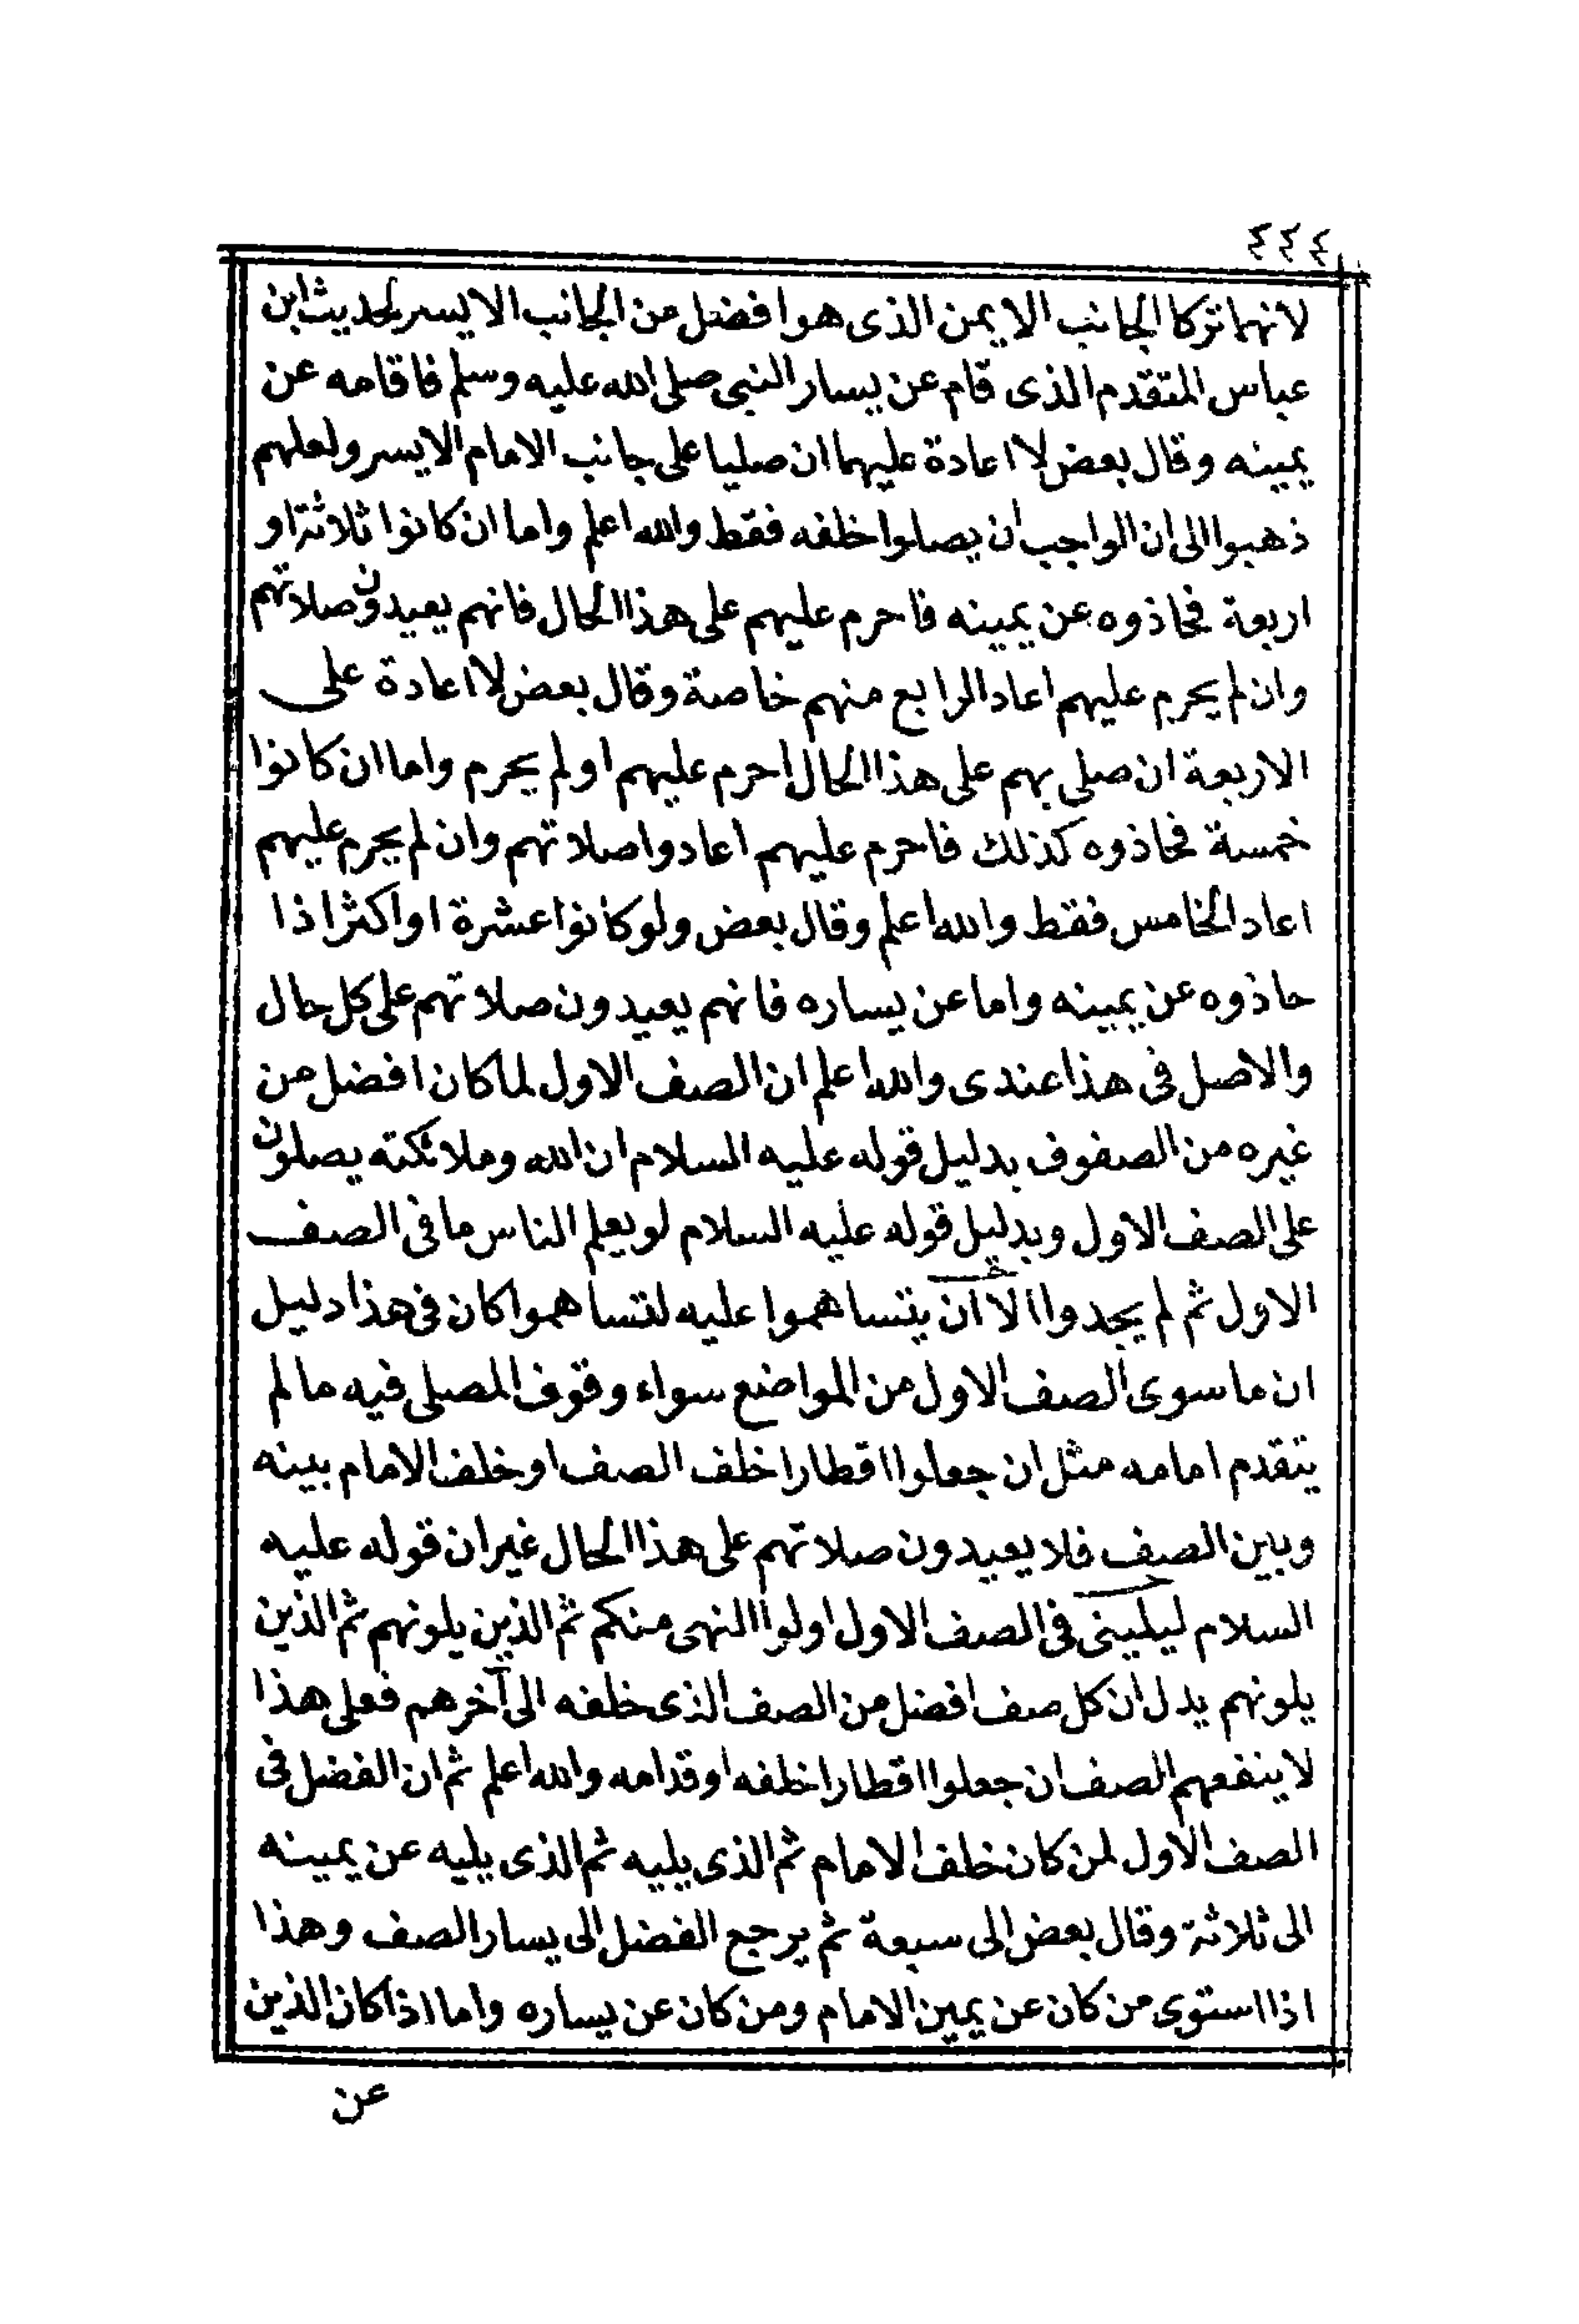 ٤٤٤
لانهما تركا الجانب الايمن الذى هو افضل من الجانب الايسر لحديث ابن
عباس المتقدم الذى قام عن يسار النبى صلى الله عليه وسلم فاقامه عن
يمينه وقال بعض لا اعادة عليهما ان صليا على جانب الامام الايسر ولعلهم
ذهبوا الى ان الواجب ان يصلوا خلفه فقط والله اعلم واما ان كانوا ثلاثة او
اربعة فحاذوه عن يمينه فاحرم عليهم على هذا الحال فانهم يعيدون صلاتهم
وان لم يحرم عليهم اعاد الرابع منهم خاصة وقال بعض لا اعادة على
الاربعة ان صلى بهم على هذا الحال احرم عليهم او لم يحرم واما ان كانوا
خمسة فحاذوه كذلك فاحرم عليهم اعادوا صلاتهم وان لم يحرم عليهم
اعاد الخامس فقط والله اعلم وقال بعض ولو كانوا عشرة او اكثر اذا
حاذوه عن يمينه واما عن يساره فانهم يعيدون صلاتهم على كل حال
والاصل فى هذا عندى والله اعلم ان الصف الاول لما كان افضل من
غيره من الصفوف بدليل قوله عليه السلام ان الله وملائكته يصلون
على الصف الاول وبدليل قوله عليه السلام لو يعلم الناس ما فى الصف
الاول ثم لم يجدوا الا ان يتساهموا عليه لتساهموا كان فى هذا دليل
ان ما سوى الصف الاول من المواضع سواء وقوف المصلى فيه ما لم
يتقدم امامه مثل ان جعلوا اقطارا خلف الصف او خلف الامام بينه
وبين الصف فلا يعيدون صلاتهم على هذا الحال غير ان قوله عليه
السلام ليلينى فى الصف الاول اولوا النهى منكم ثم الذين يلونهم ثم الذين
يلونهم يدل ان كل صف افضل من الصف الذى خلفه الى آخرهم فعلى هذا
لا ينفعهم الصف ان جعلوا اقطارا خلفه او قدامه والله اعلم ثم ان الفضل فى
الصف الاول لمن كان خلف الامام ثم الذى يليه ثم الذى يليه عن يمينه
الى ثلاثة وقال بعض الى سبعة ثم يرجع الفضل الى يسار الصف وهذا
اذا استوى من كان عن يمين الامام ومن كان عن يساره واما اذا كان الذين
عن